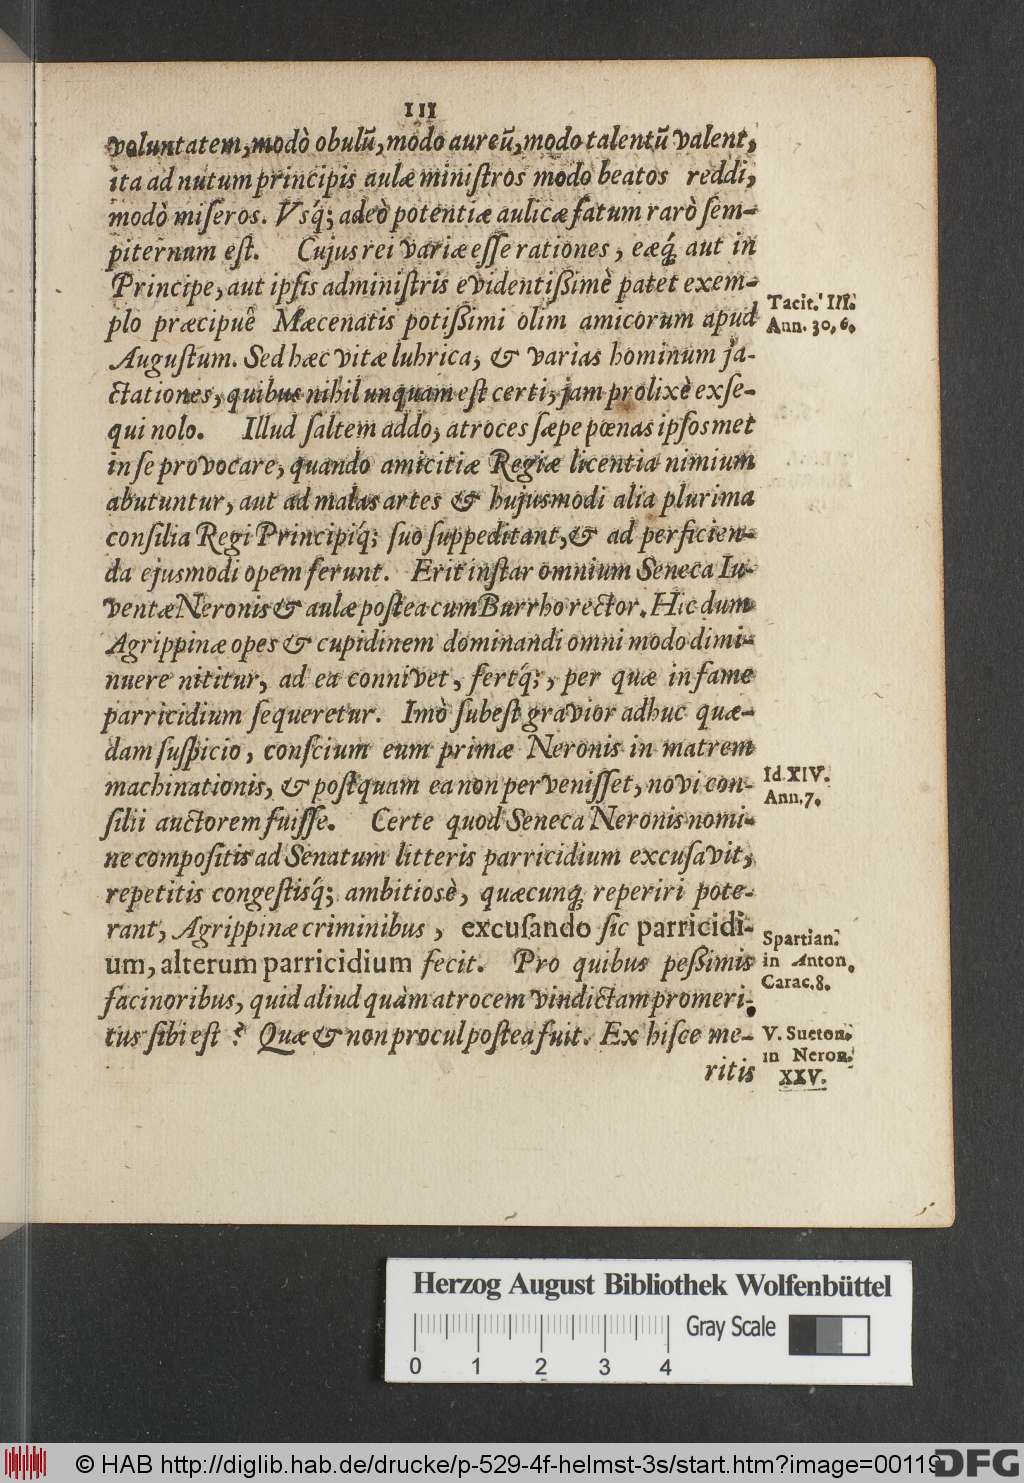 111
voluntatem, modò obulũ, modo aureũ, modo talentũ valent,
ita ad nutum principis aulæ miniſtros modo beatos reddi,
modò miſeros. Vſq́; adeò potentiæ aulicæ fatum rarò ſem-
piternum eſt. Cujus rei variæ eſſe rationes, eæq́; aut in
Principe, aut ipſis adminiſtris evidentißimè patet exem-
plo præcipuê Mæcenatis potißimi olim amicorum apud
Tacit. III.
Ann. 30, 6.
Auguſtum. Sed hæc vitæ lubrica, & varias hominum ja-
ctationes, quibus nihil unquam eſt certi, jam prolixè exſe-
qui nolo. Illud ſaltem addo, atroces ſæpe pœnas ipſosmet
in ſe provocare, quando amicitiæ Regiæ licentia nimium
abutuntur, aut ad malas artes & hujusmodi alia plurima
conſilia Regi Principiq́; ſuo ſuppeditant, & ad perficien-
da ejusmodi opem ferunt. Erit inſtar omnium Seneca Iu-
ventæ Neronis & aulæ poſtea cum Burrho rector. Hic dum
Agrippinæ opes & cupidinem dominandi omni modo dimi-
nuere nititur, ad ea connivet, fertq́;, per quæ infame
parricidium ſequeretur. Imò ſubeſt gravior adhuc quæ-
dam ſuſpicio, conſcium eum primæ Neronis in matrem
machinationis, & poſtquam ea non perveniſſet, novi con-
Id. XIV.
Ann. 7.
ſilii auctorem fuiſſe. Certe quod Seneca Neronis nomi-
ne compoſitis ad Senatum litteris parricidium excuſavit,
repetitis congeſtisq́; ambitiosè, quæcunq; reperiri pote-
rant, Agrippinæ criminibus, excuſando ſic parricidi-
um, alterum parricidium fecit. Pro quibus peßimis
Spartian.
in Anton.
Carac. 8.
facinoribus, quid aliud quàm atrocem vindictam promeri-
tus ſibi eſt? Quæ & non procul poſtea fuit. Ex hiſce me-
V. Sueton.
in Neron.
XXV.
ritis
Herzog August Bibliothek Wolfenbüttel
Gray Scale
0 1 2 3 4
© HAB http://diglib.hab.de/drucke/p-529-4f-helmst-3s/start.htm?image=00119
DFG